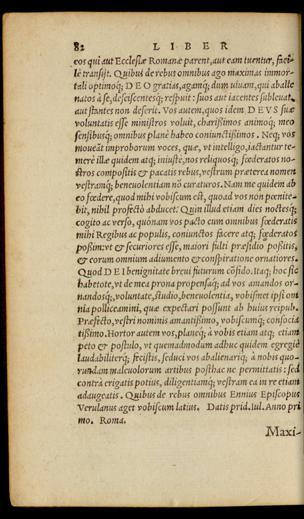 82 LIBER
eos qui aut Ecclesiæ Romanæ parent, aut eam tuentur, faci-
lè transijt. Quibus de rebus omnibus ago maximas immor-
tali optimoq; DEO gratias, agamq; dum uiuam, qui aballe
natos à se, desciscentesq; respuit: suos aut iacentes subleuat,
aut stantes non deserit. Vos autem, quos idem DEVS suæ
voluntatis esse ministros voluit, charissimos animoq; meo
sensibusq; omnibus planè habeo coniunctissimos. Neq; vos
moueāt improborum voces, quæ, vt intelligo, iactantur te-
merè illæ quidem atq; iniustè, nos reliquosq; fœderatos no-
stros compositis & pacatis rebus, vestrum præterea nomen
vestramq; beneuolentiam nō curaturos. Nam me quidem ab
eo fœdere, quod mihi vobiscum est, quoad vos non pœnite-
bit, nihil profectò abducet. Quin illud etiam dies noctesq;
cogito ac verso, quónam vos pacto cum omnibus fœderatis
mihi Regibus ac populis, coniunctos facere atq; fœderatos
possim: vt & securiores esse, maiori fulti præsidio positis,
& eorum omnium adiumento & conspiratione ornatiores.
Quod DEI benignitate breui futurum cōfido. Itaq; hoc sic
habetote, vt de mea prona propensaq; ad vos amandos or-
nandosq; voluntate, studio, beneuolentia, vobismet ipsi om
nia polliceamini, quæ expectari possunt ab huius reipub.
Præfecto, vestri nominis amantissimo, vobiscumq; consocia
tissimo. Hortor autem vos, planeq; à vobis etiam atq; etiam
peto & postulo, vt quemadmodum adhuc quidem egregiè
laudabiliterq; fecistis, seduci vos abalienariq; à nobis quo-
rundam maleuolorum artibus posthac ne permittatis: sed
contrà erigatis potius, diligentiamq; vestram ea in re etiam
adaugeatis. Quibus de rebus omnibus Ennius Episcopus
Verulanus aget vobiscum latius. Datis prid. Iul. Anno pri
mo. Roma.
Maxi-